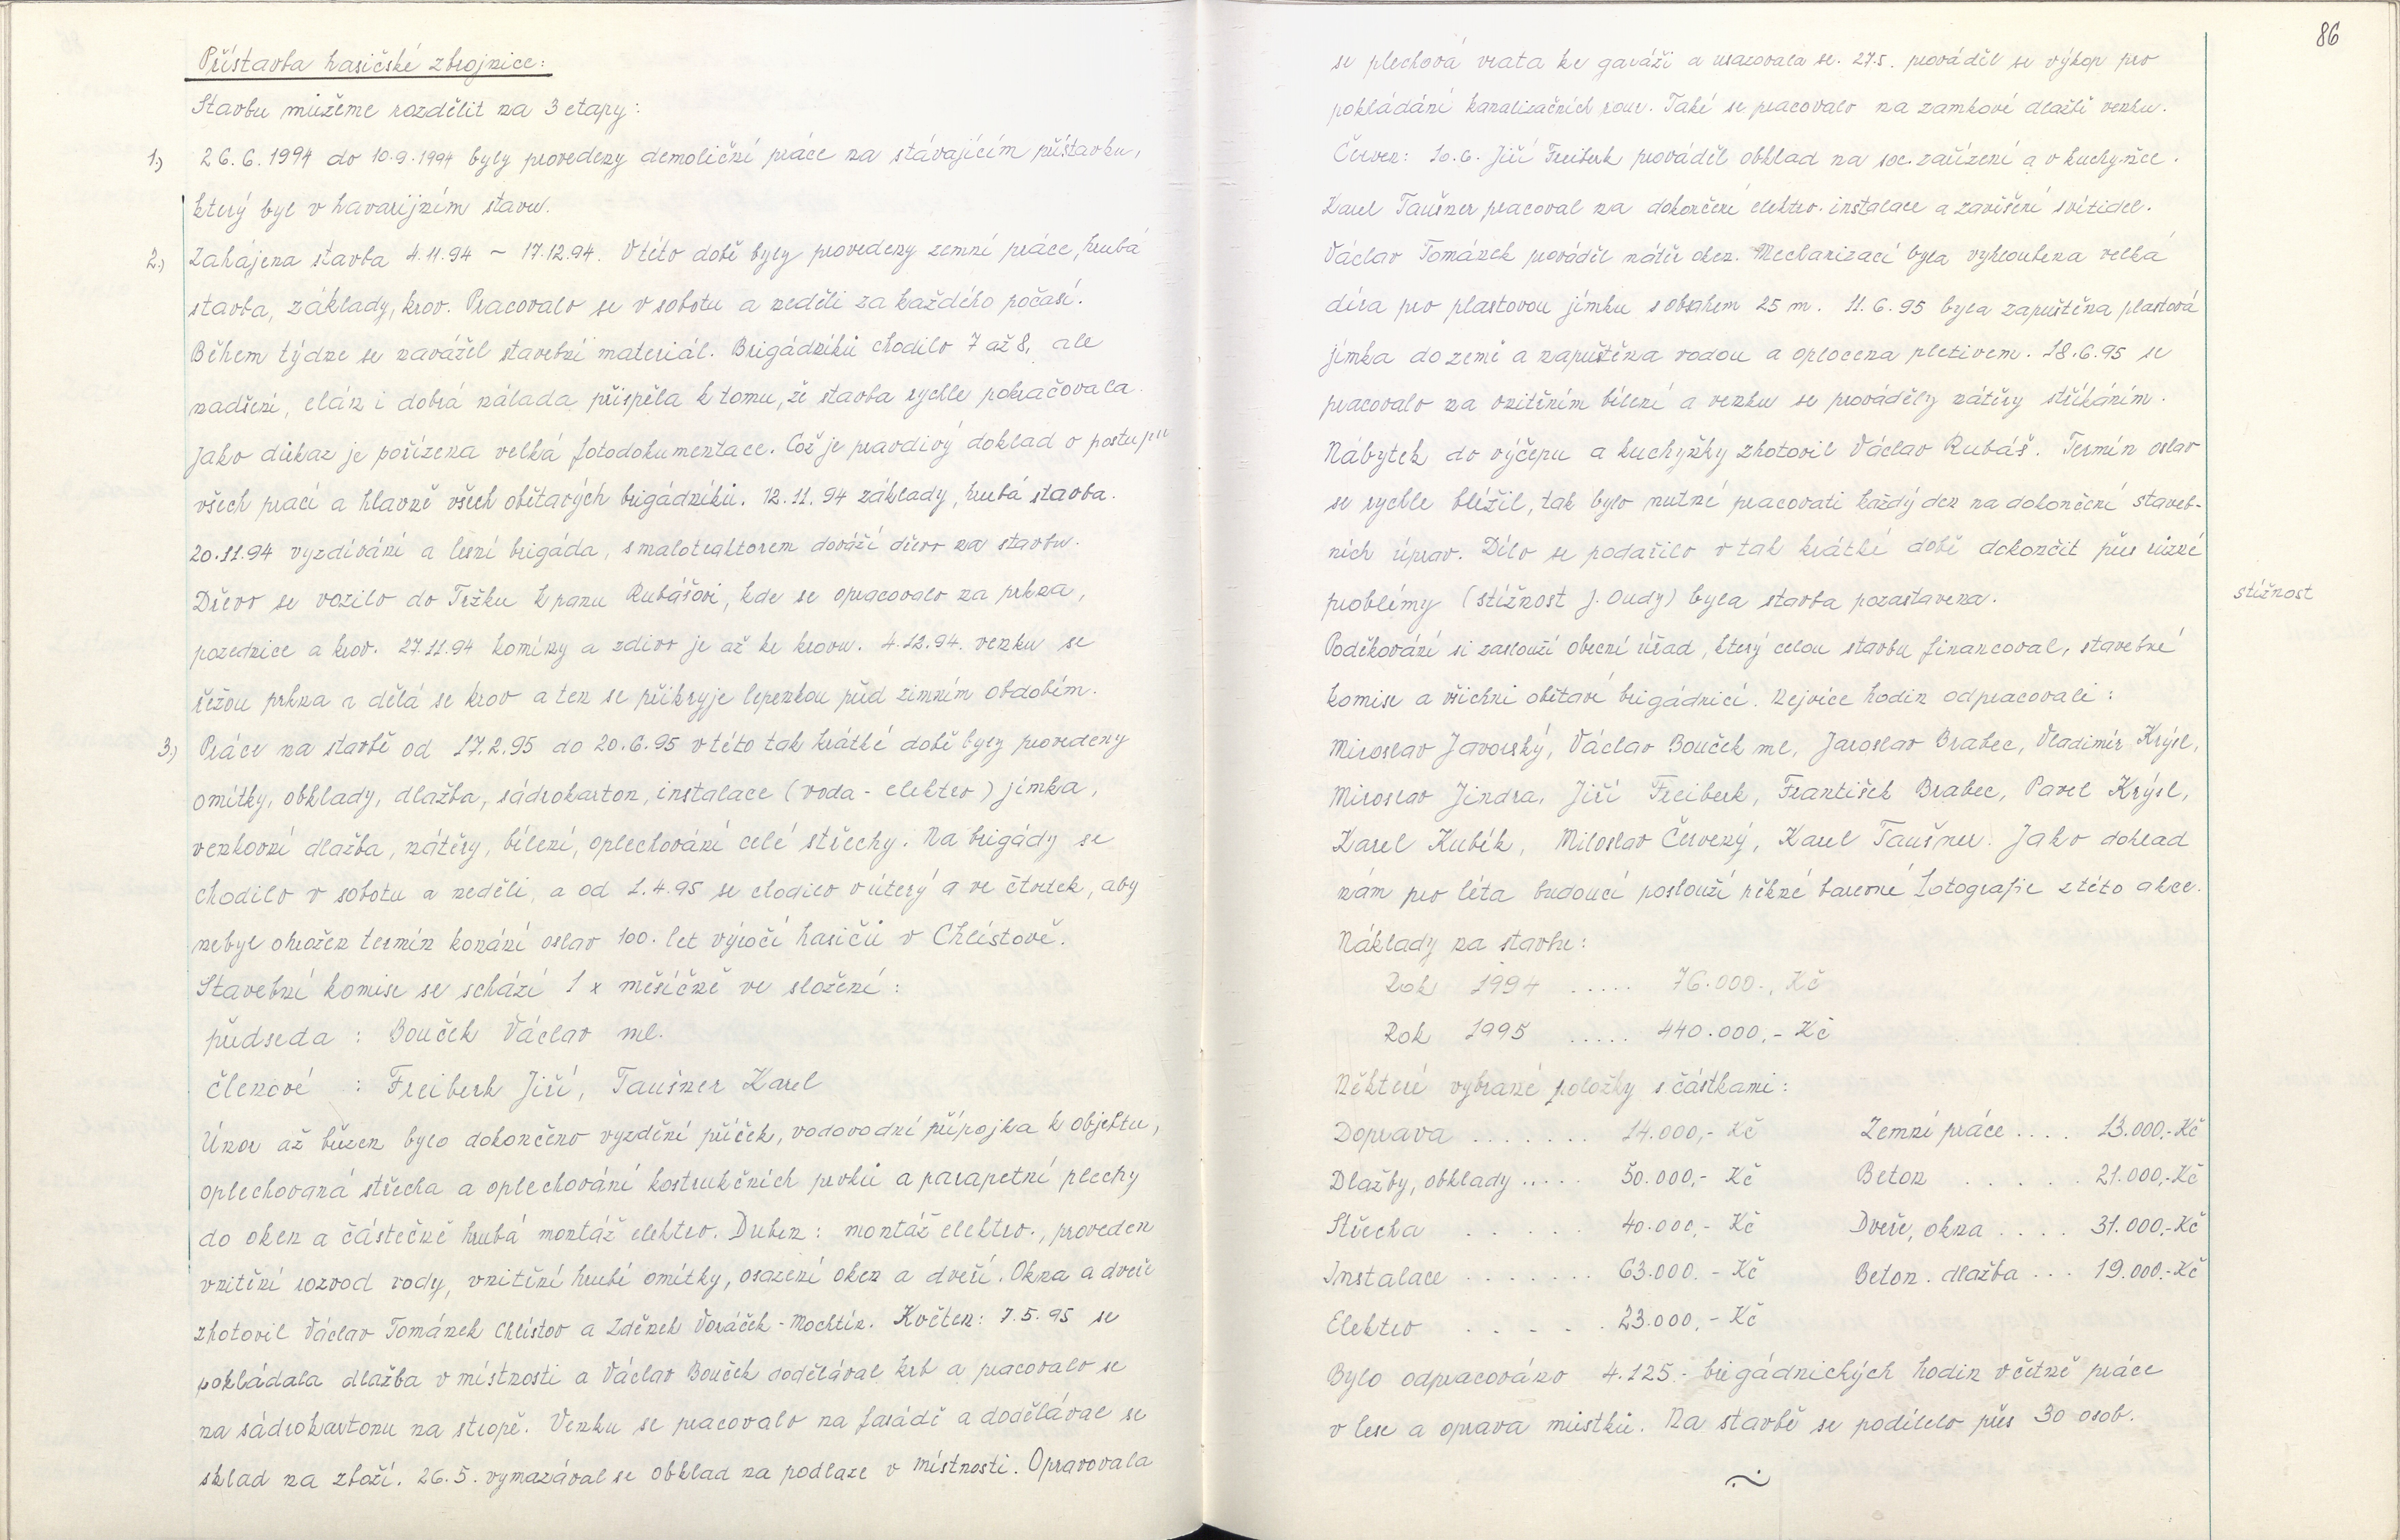 Přístavba hasičské zbrojnice:
Stavbu můžeme rozdělit na 3 etapy:
1.) 26.6.1994 do 10.9.1994 byly provedeny demoliční práce na stávajícím přístavku,
který byl v havarijním stavu.
2.) Zahájena stavba 4.11.94 ~ 17.12.94. V této době byly provedeny zemní práce, hrubá
stavba, základy, krov. Pracovalo se v sobotu a neděli za každého počasí.
Během týdne se navážel stavební materiál. Brigádníků chodilo 7 až 8, ale
nadšení, elán i dobrá nálada přispěla k tomu, že stavba rychle pokračovala.
Jako důkaz je pořízena velká fotodokumentace. Což je pravdivý doklad o postupu
všech prací a hlavně všech obětavých brigádníků. 12.11.94 základy, hrubá stavba.
20.11.94 vyzdívání a lesní brigáda, s malotraktorem dováží dřevo na stavbu.
Dřevo se vozilo do Tržku k panu Rubášovi, kde se opracovalo na prkna,
pozednice a krov. 27.11.94 komíny a zdivo je až ke krovu. 4.12.94. venku se
řežou prkna a dělá se krov a ten se přikryje lepenkou před zimním obdobím.
3.) Práce na stavbě od 17.2.95 do 20.6.95 v této tak krátké době byly provedeny
omítky, obklady, dlažba, sádrokarton, instalace (voda - elektro) jímka,
venkovní dlažba, nátěry, bílení, oplechování celé střechy. Na brigády se
chodilo v sobotu a neděli, a od 1.4.95 se chodilo v úterý a ve čtvrtek, aby
nebyl ohrožen termín konání oslav 100. let výročí hasičů v Chlístově.
Stavební komise se schází 1 x měsíčně ve složení:
předseda : Bouček Václav ml.
členové : Freiberk Jiří, Taušner Karel
Únor až březen bylo dokončeno vyzdění příček, vodovodní přípojka k objektu,
oplechovaná střecha a oplechování kostrukčních prvků a parapetní plechy
do oken a částečně hrubá montáž elektro. Duben: montáž elektro., proveden
vnitřní rozvod vody, vnitřní hrubé omítky, osazení oken a dveří. Okna a dveře
zhotovil Václav Tománek Chlístov a Zdeněk Voráček - Mochtín. Květen: 7.5.95 se
pokládala dlažba v místnosti a Václav Bouček dodělával krb a pracovalo se
na sádrokartonu na stropě. Venku se pracovalo na fasádě a dodělával se
sklad na zboží. 26.5. vymazával se obklad na podlaze v místnosti. Opravovala
86
se plechová vrata ke garáži a usazovala se. 27.5. prováděl se výkop pro
pokládání kanalizačních rour. Také se pracovalo na zámkové dlažbě venku.
Červen: 10.6. Jiří Freiberk prováděl obklad na soc. zařízení a v kuchyňce.
Karel Taušner pracoval na dokončení elektro. instalace a zavěšení svítidel.
Václav Tománek prováděl nátěr oken. Mechanizací byla vyhloubena velká
díra pro plastovou jímku s obsahem 25 m. 11.6.95 byla zapuštěna plastová
jímka do země a napuštěna vodou a oplocena pletivem. 18.6.95 se
pracovalo na vnitřním bílení a venku se prováděly nátěry stříkáním.
Nábytek do výčepu a kuchyňky zhotovil Václav Rubáš. Termín oslav
se rychle blížil, tak bylo nutné pracovati každý den na dokončení staveb-
ních úprav. Dílo se podařilo v tak krátké době dokončit přes různé
problémy (stížnost J. Oudy) byla stavba pozastavena.
stížnost
Poděkování si zaslouží obecní úřad, který celou stavbu financoval, stavební
komise a všichni obětaví brigádníci. Nejvíce hodin odpracovali:
Miroslav Javorský, Václav Bouček ml, Jaroslav Brabec, Vladimír Krýsl,
Miroslav Jindra, Jiří Freiberk, František Brabec, Pavel Krýsl,
Karel Kubík, Miloslav Červený, Karel Taušner. Jako dohlad
nám pro léta budoucí poslouží pěkné barevné fotografie z této akce.
Náklady na stavbu:
Rok 1994 ..... 76.000.-, Kč
Rok 1995 ..... 440.000,- Kč
Některé vybrané položky s částkami:
Doprava ....... 14.000,- Kč Zemní práce .... 13.000,- Kč
Dlažby, obklady ..... 50.000,- Kč Beton ..... 21.000,- Kč
Střecha ..... 40.000,- Kč Dveře, okna .... 31.000,- Kč
Instalace ....... 63.000.- Kč Beton. dlažba ... 19.000,- Kč
Elektro ..... 23.000,- Kč
Bylo odpracováno 4.125.- brigádnických hodin včetně práce
v lese a oprava můstků. Na stavbě se podílelo přes 30 osob.